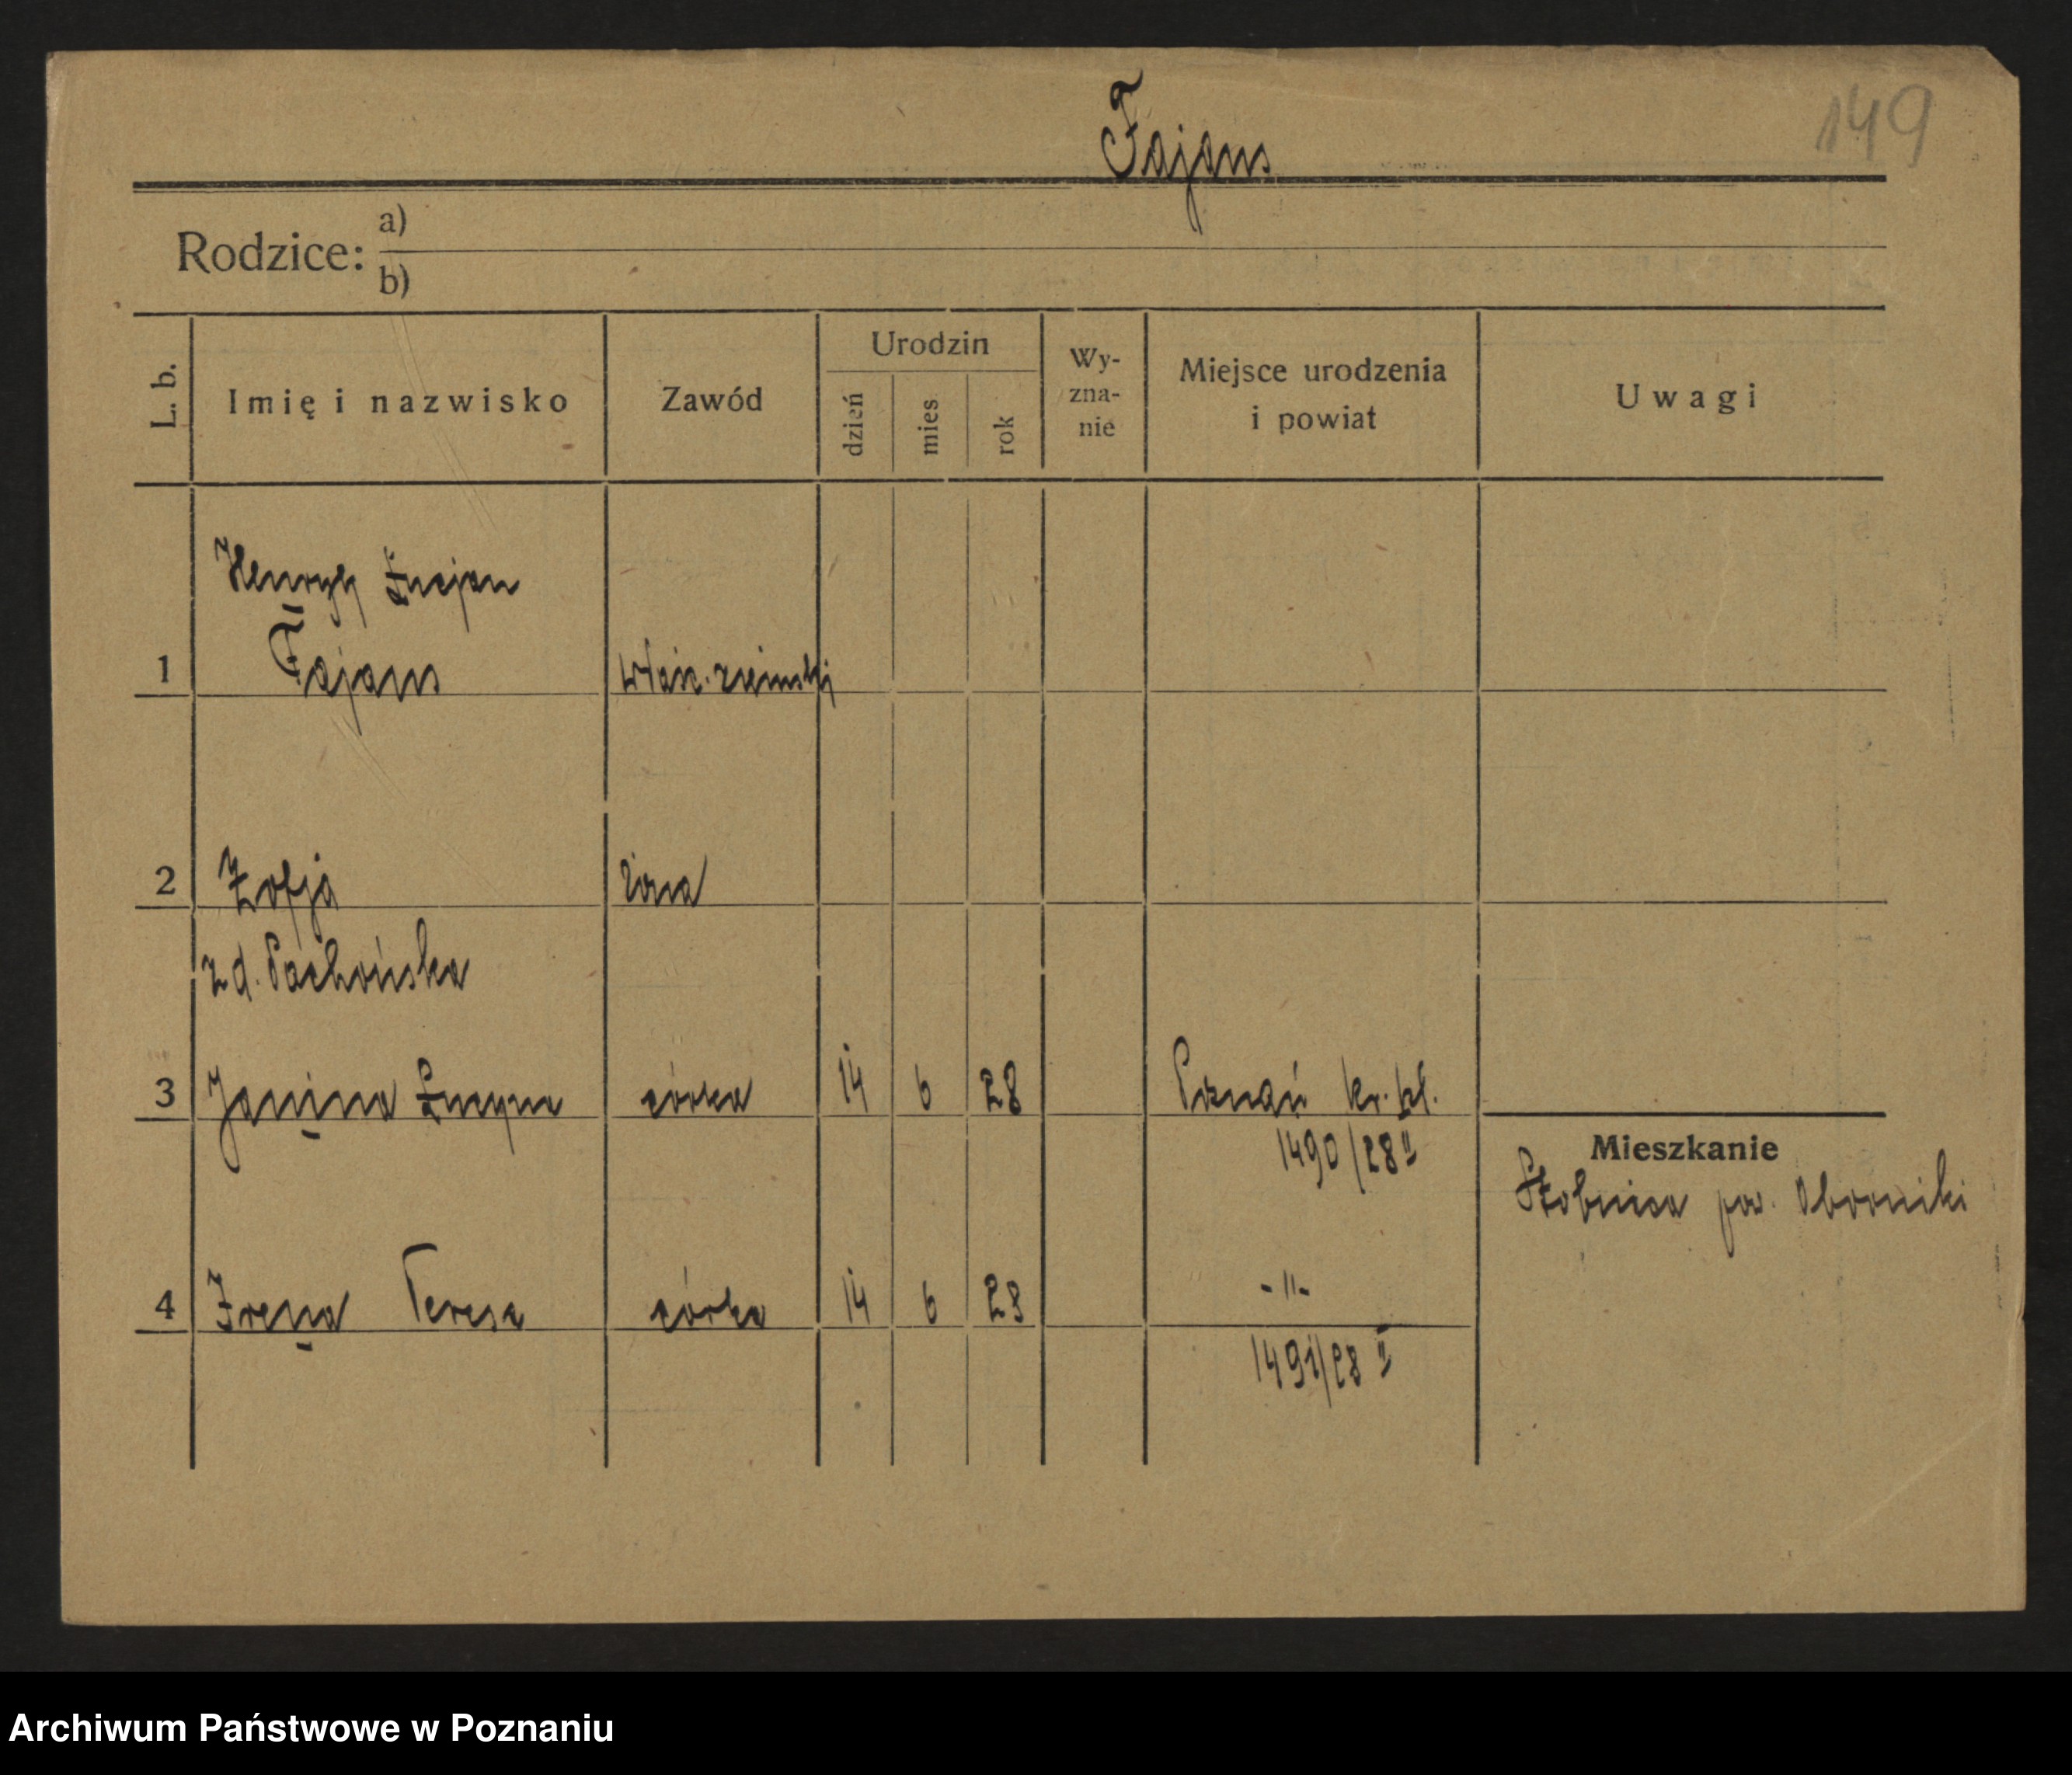 149
Fajans
Rodzice: a)
b)
L. b. Imię i nazwisko Zawód Urodzin dzień mies rok Wy-zna-nie Miejsce urodzenia i powiat Uwagi
Henryk Lucjan
1 Fajans właśc. ziemski
2 Zofja żona
z d. Pachońska
3 Janina Lucyna córka 14 6 28 Poznań kr. kl.
1490/28 II
Mieszkanie
Stobnica pow. Oborniki
4 Irena Teresa córka 14 6 28 -"-
1491/28 II
Archiwum Państwowe w Poznaniu